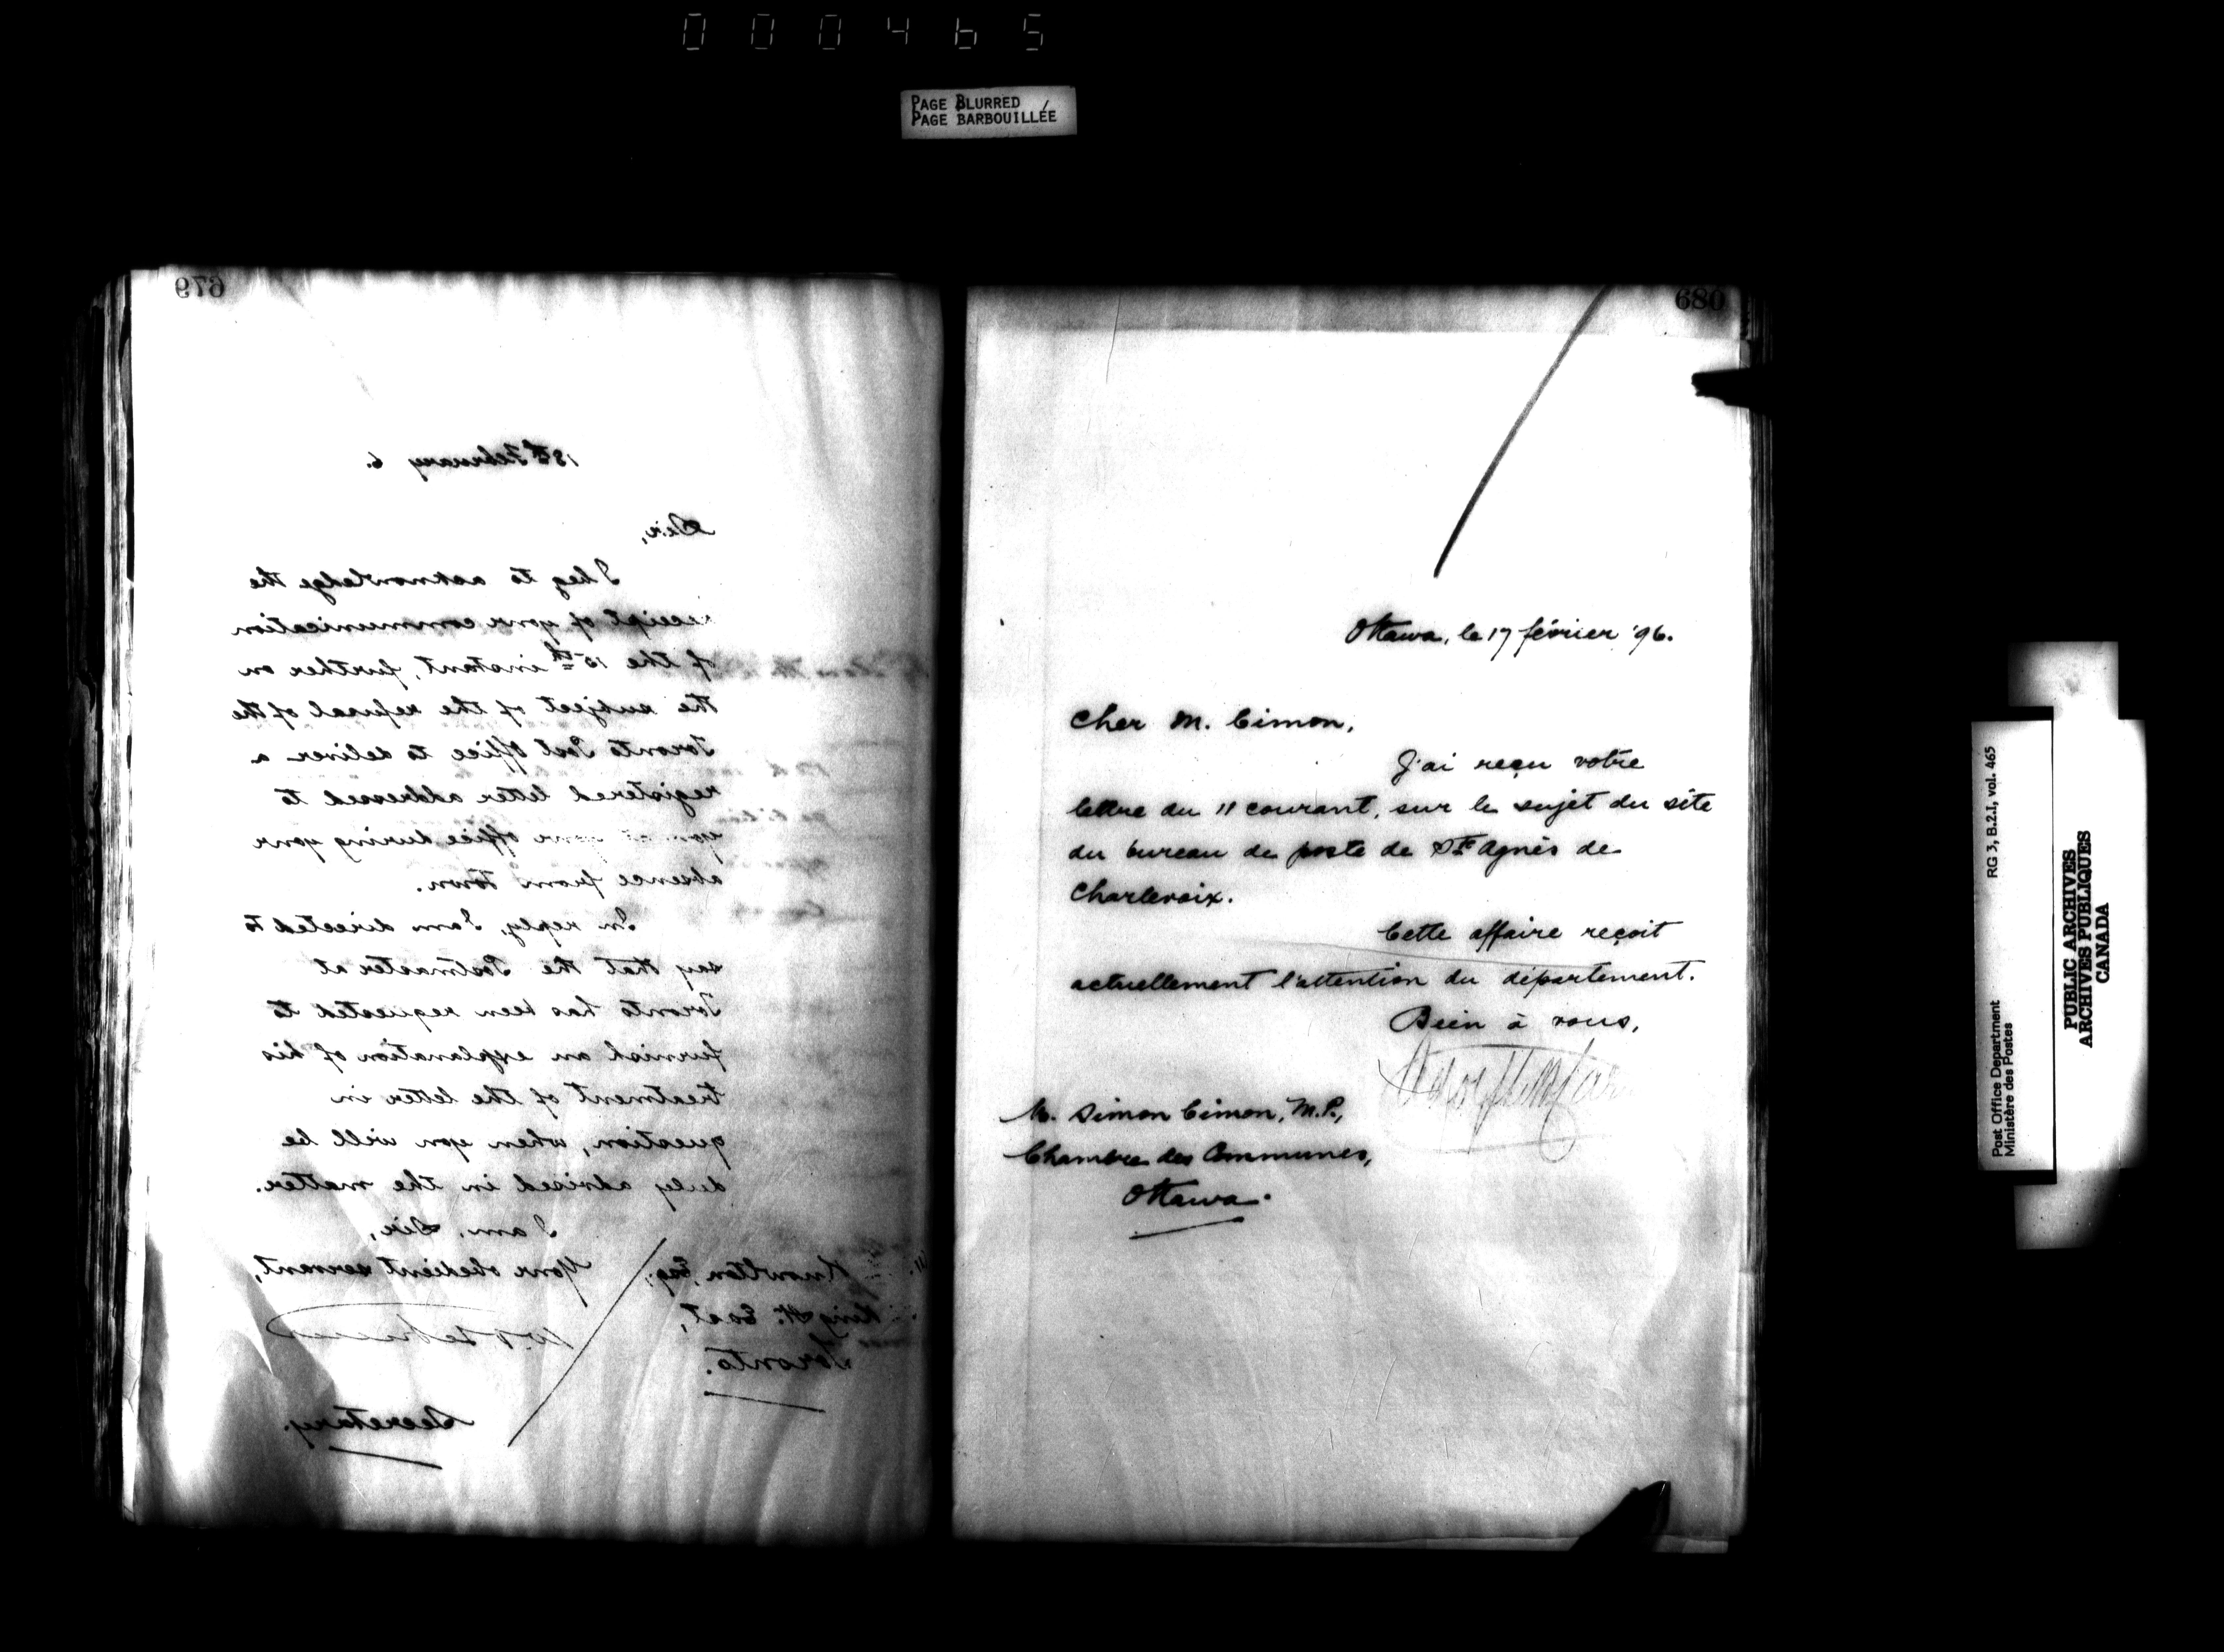 000465
PAGE BLURRED
PAGE BARBOUILLÉE
679
18th February 6.
Sir,
I beg to acknowledge the
receipt of your communication
of the 15th instant, further on
the subject of the refusal of the
Toronto Post Office to deliver a
registered letter addressed to
you at your office during your
absence from town.
In reply, I am directed to
say that the Postmaster at
Toronto has been requested to
furnish an explanation of his
treatment of the letter in
question, when you will be
duly advised in the matter.
I am, Sir,
Your obedient servant,
Knowlton, Esq,
King St. East,
Toronto.
Secretary.
680
Ottawa, le 17 février '96.
Cher M. Cimon,
J'ai reçu votre
lettre du 11 courant, sur le sujet du site
du bureau de poste de Ste Agnès de
Charlevoix.
Cette affaire reçoit
actuellement l'attention du département.
Bien à vous,
M. Simon Cimon, M.P.,
Chambre des Communes,
Ottawa.
Post Office Department
Ministère des Postes
RG 3, B.2.I, vol. 465
PUBLIC ARCHIVES
ARCHIVES PUBLIQUES
CANADA